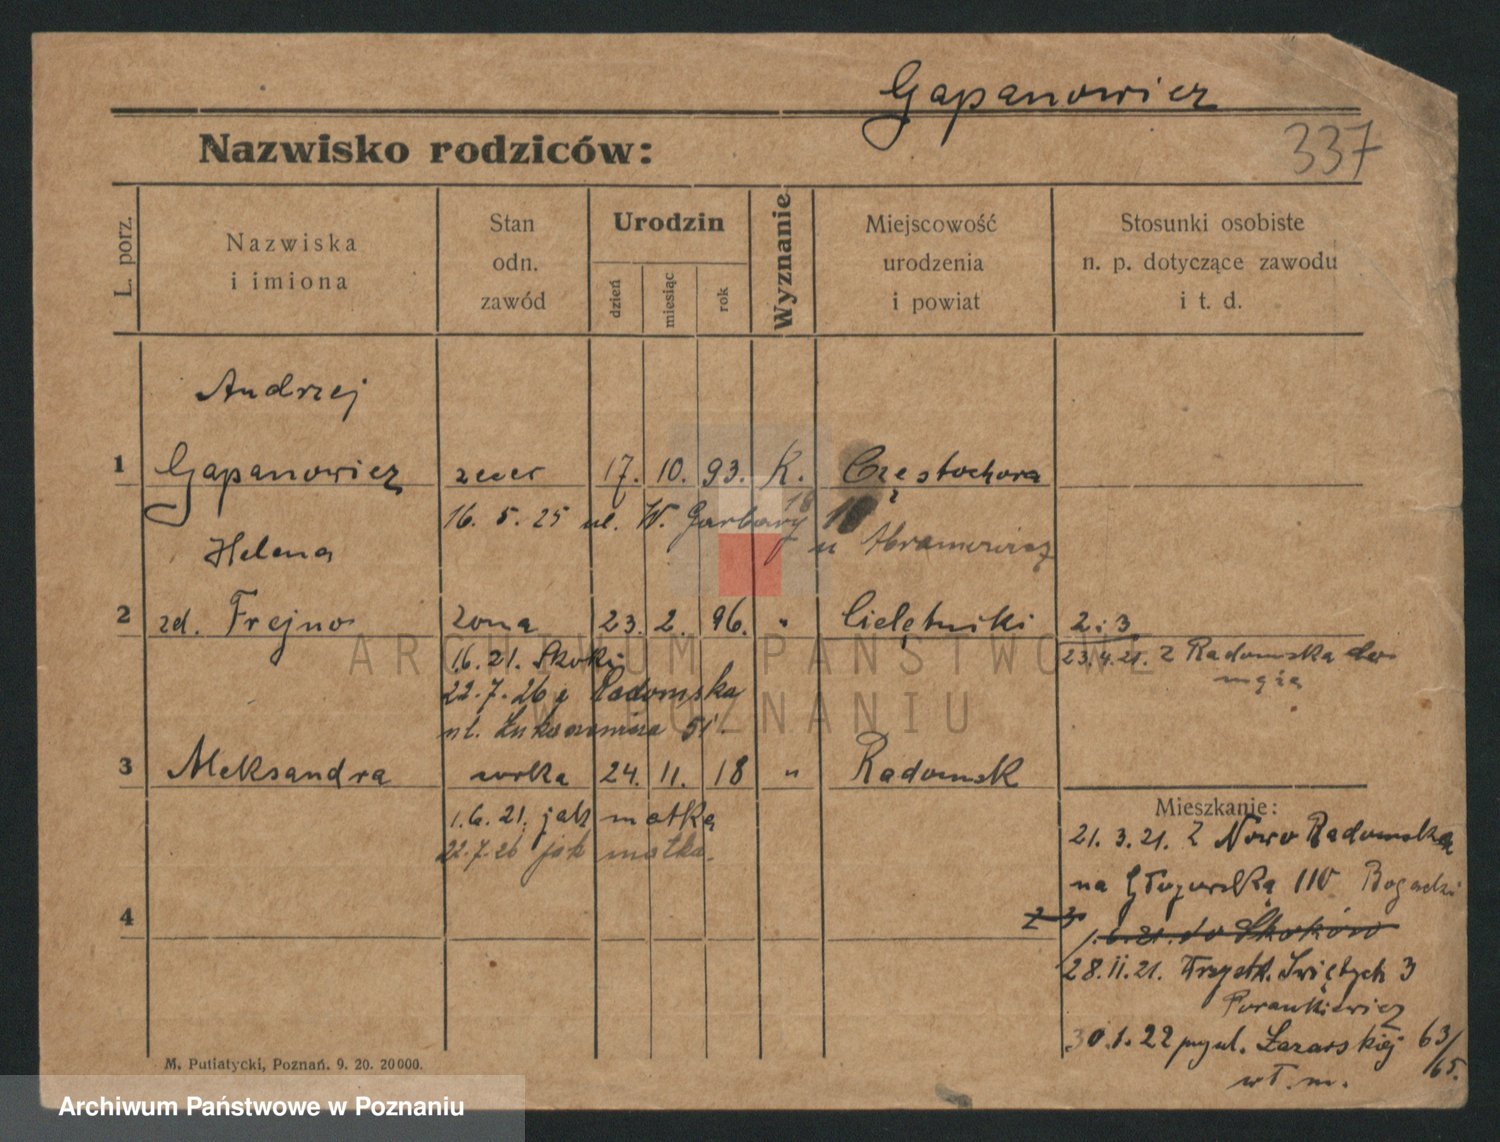 Gapanowicz
337
Nazwisko rodziców:
L. porz.
Nazwiska
i imiona
Stan
odn.
zawód
Urodzin
dzień
miesiąc
rok
Wyznanie
Miejscowość
urodzenia
i powiat
Stosunki osobiste
n. p. dotyczące zawodu
i t. d.
Andrzej
1 Gapanowicz zecer 17. 10. 93. K. Częstochowa
16. 5. 25 ul. W. Garbary 18
u Abramowicz
Helena
2 zd. Frejno żona 23. 2. 96. " Cielętniki 2 i 3
1.6.21. Skoki 23.4.21. z Radomska do
męża
22.7.26 Radomska
ul. 51.
3 Aleksandra córka 24. 11. 18 " Radomsk
1.6.21. jak matka
22.7.26 jak matka.
Mieszkanie:
21. 3. 21. Z Nowo Radomska
na Głogowską 110
4
2-3
1.6.21. do Skoków
28.11.21. Świętych 3
30.1.22 ul. Łazarskiej 63/65.
wł. m.
M. Putiatycki, Poznań. 9. 20. 20000.
ARCHIWUM PAŃSTWOWE
W POZNANIU
Archiwum Państwowe w Poznaniu